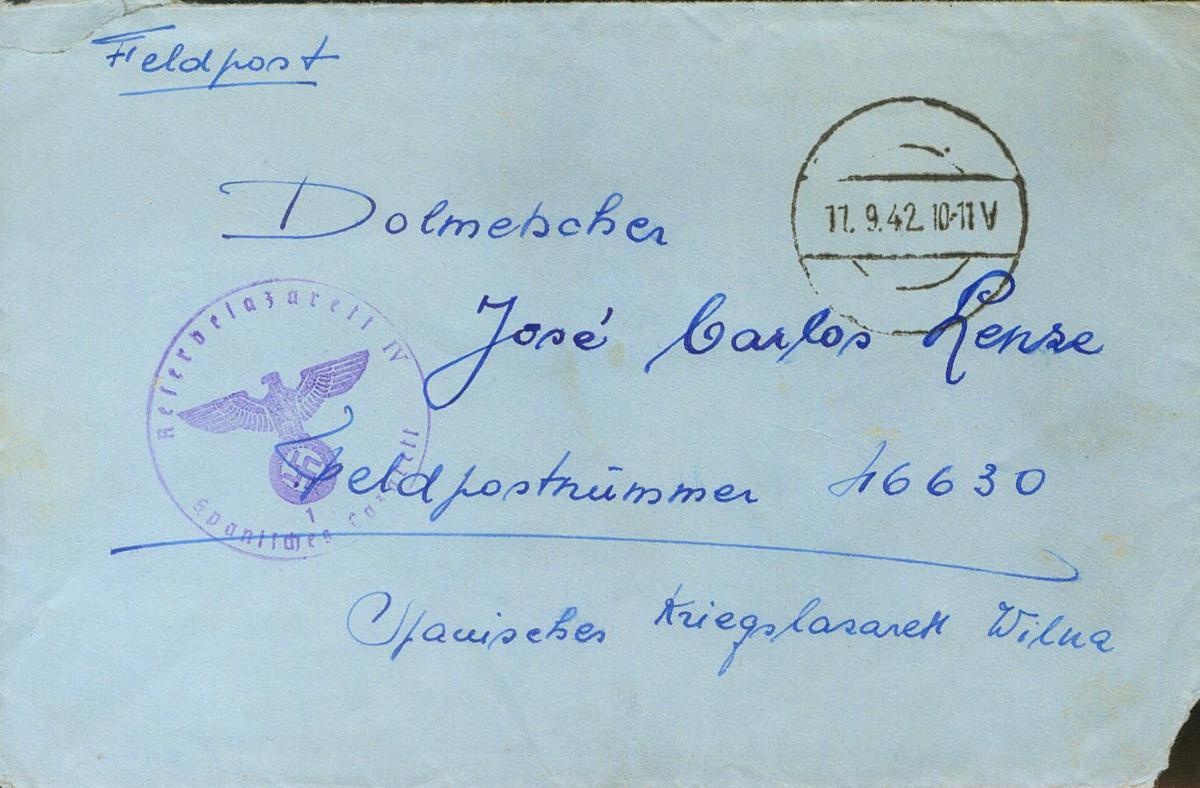 Feldpost
11.9.42.10-11V
Dolmetscher
José Carlos Lenze
Reservelazarett IV
Spanisches Lazarett
1
Feldpostnummer 46630
Spanisches Kriegslazarett Wilna